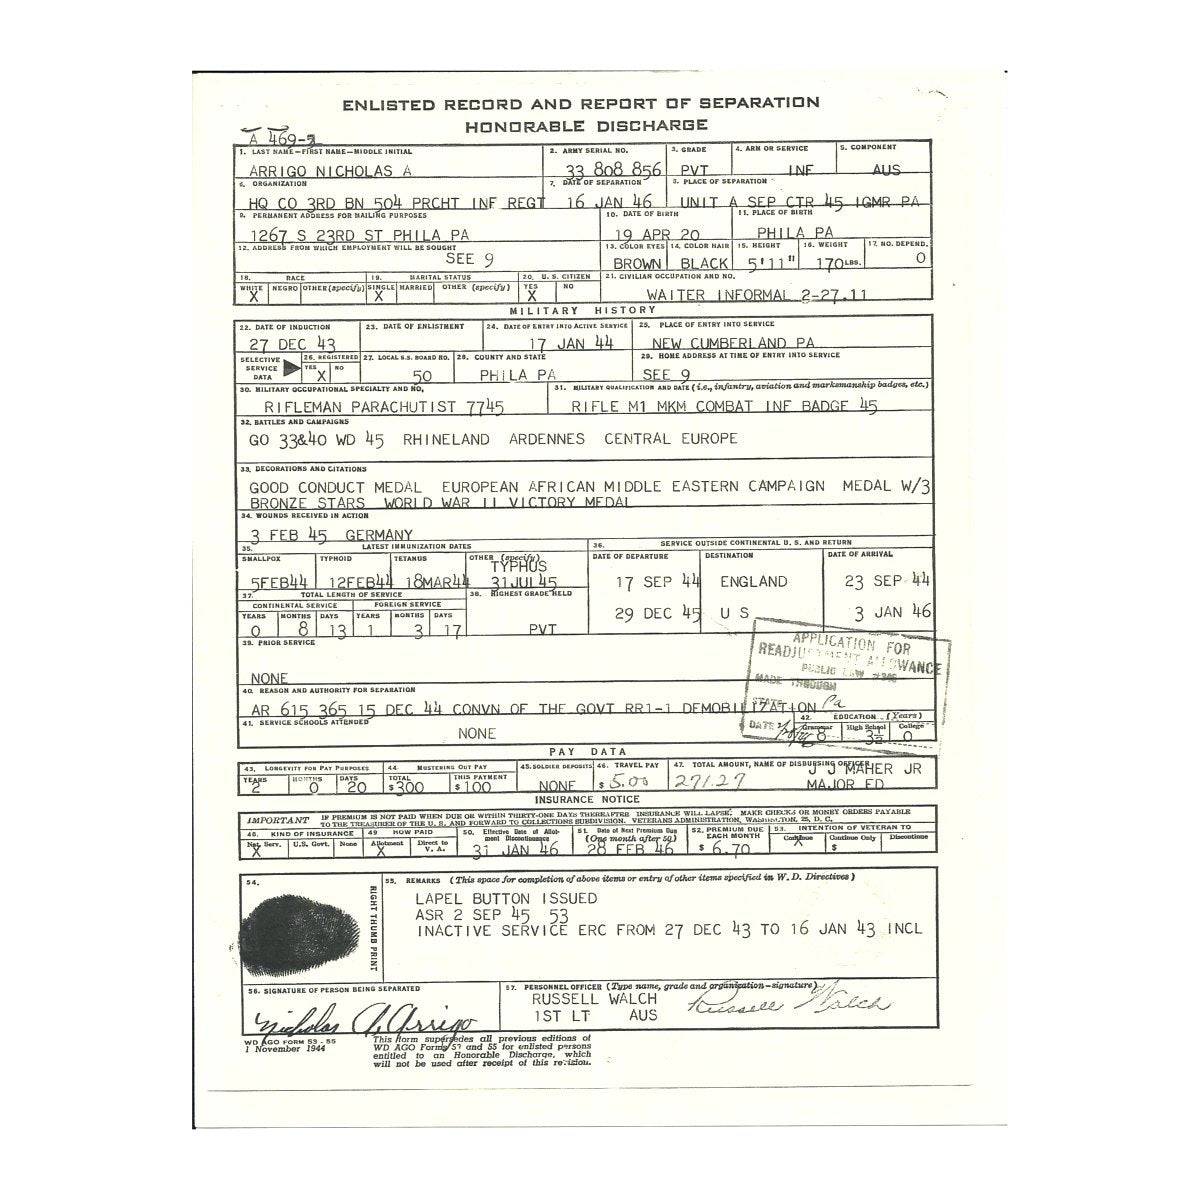 ENLISTED RECORD AND REPORT OF SEPARATION
HONORABLE DISCHARGE
A 469-5
1. LAST NAME—FIRST NAME—MIDDLE INITIAL 2. ARMY SERIAL NO. 3. GRADE 4. ARM OR SERVICE 5. COMPONENT
ARRIGO NICHOLAS A 33 808 856 PVT INF AUS
6. ORGANIZATION 7. DATE OF SEPARATION 8. PLACE OF SEPARATION
HQ CO 3RD BN 504 PRCHT INF REGT 16 JAN 46 UNIT A SEP CTR 45 IGMR PA
9. PERMANENT ADDRESS FOR MAILING PURPOSES 10. DATE OF BIRTH 11. PLACE OF BIRTH
1267 S 23RD ST PHILA PA 19 APR 20 PHILA PA
12. ADDRESS FROM WHICH EMPLOYMENT WILL BE SOUGHT 13. COLOR EYES 14. COLOR HAIR 15. HEIGHT 16. WEIGHT 17. NO. DEPEND.
SEE 9 BROWN BLACK 5'11" 170 LBS. 0
18. RACE 19. MARITAL STATUS 20. U. S. CITIZEN 21. CIVILIAN OCCUPATION AND NO.
WHITE NEGRO OTHER (specify) SINGLE MARRIED OTHER (specify) YES NO
X X X WAITER INFORMAL 2-27.11
MILITARY HISTORY
22. DATE OF INDUCTION 23. DATE OF ENLISTMENT 24. DATE OF ENTRY INTO ACTIVE SERVICE 25. PLACE OF ENTRY INTO SERVICE
27 DEC 43 17 JAN 44 NEW CUMBERLAND PA
SELECTIVE SERVICE DATA 26. REGISTERED YES NO 27. LOCAL S.S. BOARD NO. 28. COUNTY AND STATE 29. HOME ADDRESS AT TIME OF ENTRY INTO SERVICE
X 50 PHILA PA SEE 9
30. MILITARY OCCUPATIONAL SPECIALTY AND NO. 31. MILITARY QUALIFICATION AND DATE (i.e., infantry, aviation and marksmanship badges, etc.)
RIFLEMAN PARACHUTIST 7745 RIFLE M1 MKM COMBAT INF BADGE 45
32. BATTLES AND CAMPAIGNS
GO 33&40 WD 45 RHINELAND ARDENNES CENTRAL EUROPE
33. DECORATIONS AND CITATIONS
GOOD CONDUCT MEDAL EUROPEAN AFRICAN MIDDLE EASTERN CAMPAIGN MEDAL W/3
BRONZE STARS WORLD WAR II VICTORY MEDAL
34. WOUNDS RECEIVED IN ACTION
3 FEB 45 GERMANY
35. LATEST IMMUNIZATION DATES 36. SERVICE OUTSIDE CONTINENTAL U. S. AND RETURN
SMALLPOX TYPHOID TETANUS OTHER (specify) DATE OF DEPARTURE DESTINATION DATE OF ARRIVAL
TYPHUS
5FEB44 12FEB44 18MAR44 31JUL45 17 SEP 44 ENGLAND 23 SEP 44
37. TOTAL LENGTH OF SERVICE 38. HIGHEST GRADE HELD
CONTINENTAL SERVICE FOREIGN SERVICE 29 DEC 45 U S 3 JAN 46
YEARS MONTHS DAYS YEARS MONTHS DAYS
0 8 13 1 3 17 PVT
39. PRIOR SERVICE
NONE
APPLICATION FOR
READJUSTMENT ALLOWANCE
PUBLIC LAW #346
MADE THROUGH
STATE Pa
DATE
40. REASON AND AUTHORITY FOR SEPARATION
AR 615 365 15 DEC 44 CONVN OF THE GOVT RR1-1 DEMOBILIZATION
41. SERVICE SCHOOLS ATTENDED 42. EDUCATION (Years)
NONE Grammar 8 High School 3½ College 0
PAY DATA
43. LONGEVITY FOR PAY PURPOSES 44. MUSTERING OUT PAY 45. SOLDIER DEPOSITS 46. TRAVEL PAY 47. TOTAL AMOUNT, NAME OF DISBURSING OFFICER
YEARS MONTHS DAYS TOTAL THIS PAYMENT J J MAHER JR
2 0 20 $300 $100 NONE $5.00 271.27 MAJOR FD
INSURANCE NOTICE
IMPORTANT IF PREMIUM IS NOT PAID WHEN DUE OR WITHIN THIRTY-ONE DAYS THEREAFTER, INSURANCE WILL LAPSE. MAKE CHECKS OR MONEY ORDERS PAYABLE
TO THE TREASURER OF THE U. S. AND FORWARD TO COLLECTIONS SUBDIVISION, VETERANS ADMINISTRATION, WASHINGTON, 25, D. C.
48. KIND OF INSURANCE 49. HOW PAID 50. Effective Date of Allotment Discontinuance 51. Date of Next Premium Due (One month after 50) 52. PREMIUM DUE EACH MONTH 53. INTENTION OF VETERAN TO
Nat. Serv. U.S. Govt. None Allotment Direct to V. A. Continue Continue Only Discontinue
X X 31 JAN 46 28 FEB 46 $ 6.70 X $
54. RIGHT THUMB PRINT
55. REMARKS (This space for completion of above items or entry of other items specified in W. D. Directives)
LAPEL BUTTON ISSUED
ASR 2 SEP 45 53
INACTIVE SERVICE ERC FROM 27 DEC 43 TO 16 JAN 43 INCL
56. SIGNATURE OF PERSON BEING SEPARATED 57. PERSONNEL OFFICER (Type name, grade and organization—signature)
Nicholas A. Arrigo RUSSELL WALCH Russell Walch
1ST LT AUS
WD AGO FORM 53 - 55
1 November 1944
This form supersedes all previous editions of
WD AGO Forms 53 and 55 for enlisted persons
entitled to an Honorable Discharge, which
will not be used after receipt of this revision.